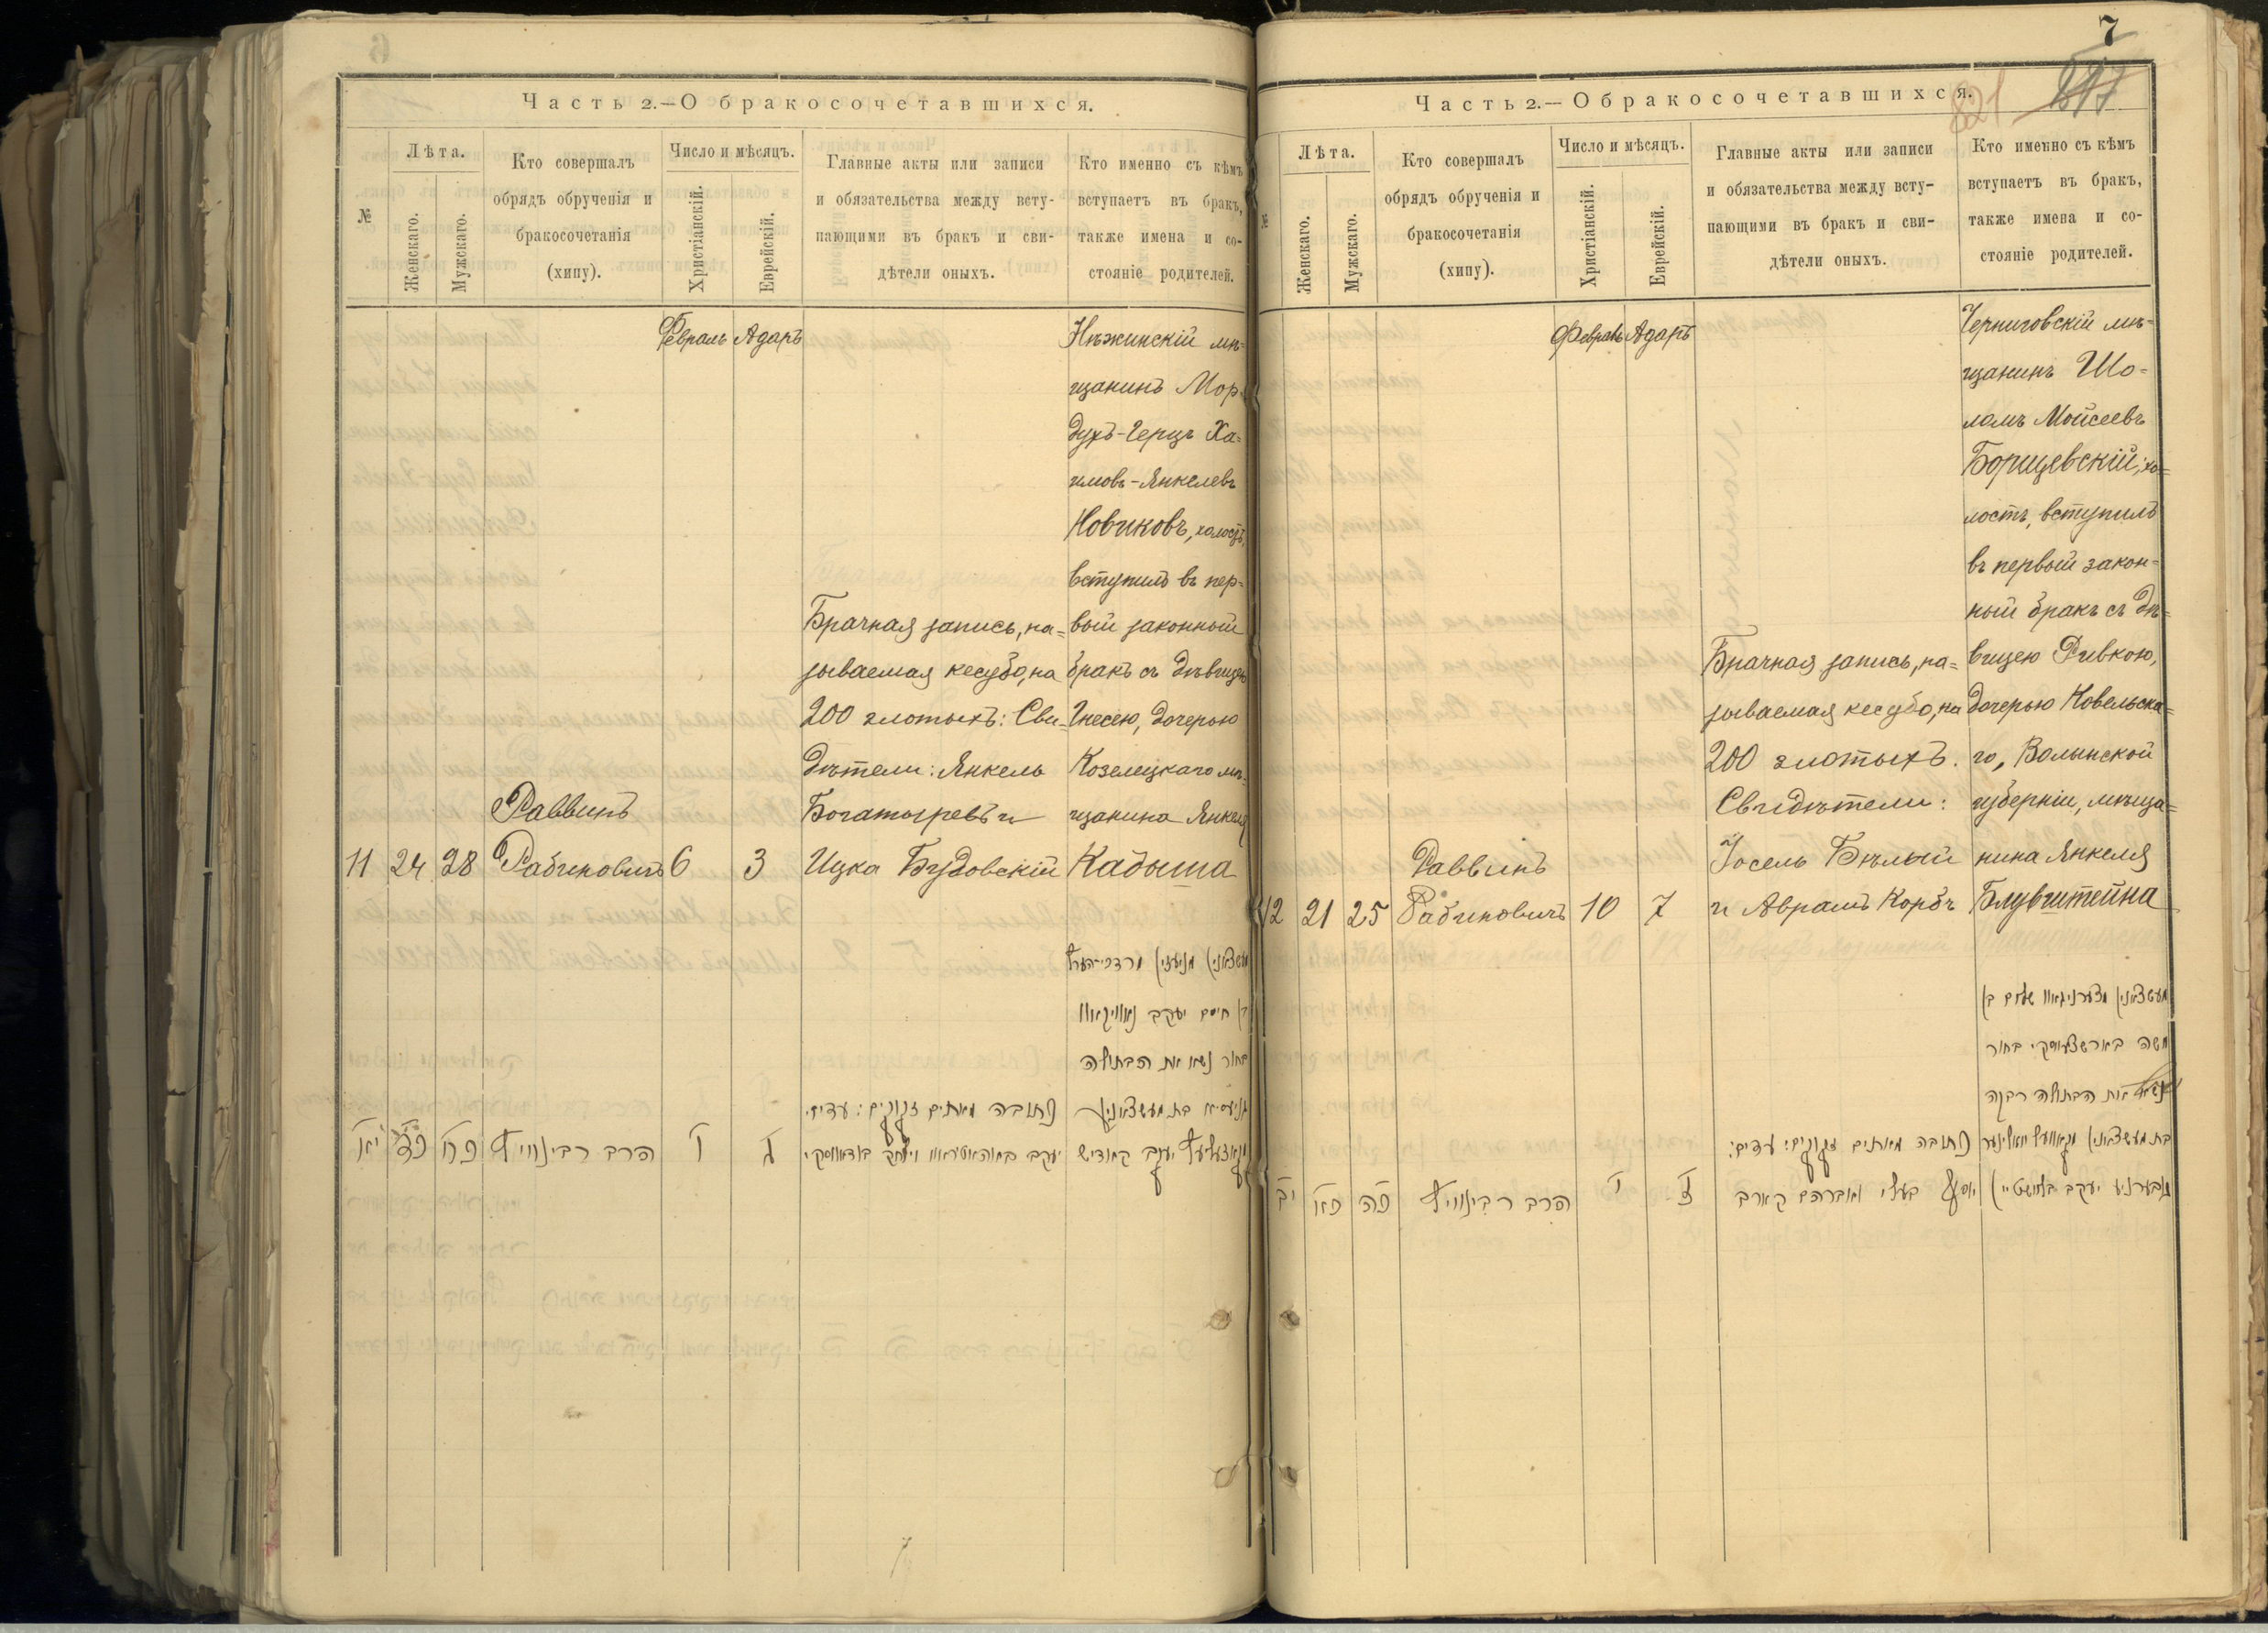 Часть 2.—О бракосочетавшихся.
№
Лѣта.
Женскаго.
Мужскаго.
Кто совершалъ
обрядъ обрученія и
бракосочетанія
(хипу).
Число и мѣсяцъ.
Христіанскій.
Еврейскій.
Главные акты или записи
и обязательства между всту-
пающими въ бракъ и сви-
дѣтели оныхъ.
Кто именно съ кѣмъ
вступаетъ въ бракъ,
также имена и со-
стояніе родителей.
11
24
28
Раввинъ
Рабиновичъ
Февраль
6
Адаръ
3
Брачная запись, на=
зываемая кесубо, на
200 злотыхъ: Сви-
дѣтели: Янкель
Богатыревъ и
Ицка Будовскій
Нѣжинскій мѣ=
щанинъ Мор=
духъ-Герцъ Ха=
имовъ-Янкелевъ
Новиковъ, холостъ,
вступилъ въ пер=
вый законный
бракъ съ дѣвицею
Гнесею, дочерью
Козелецкаго мѣ-
щанина Янкеля
Кадыша
יא
כד
כח
הרב רבינוויץ
ו
ג
כתובה מאתים זקוקים: עדים:
מעשצאנין מניעזין מרדכי-הערץ
בן חיים יעקב נאוויקאוו
בחור נשא את הבתולה
7
821
Часть 2.—О бракосочетавшихся.
№
Лѣта.
Женскаго.
Мужскаго.
Кто совершалъ
обрядъ обрученія и
бракосочетанія
(хипу).
Число и мѣсяцъ.
Христіанскій.
Еврейскій.
Главные акты или записи
и обязательства между всту-
пающими въ бракъ и сви-
дѣтели оныхъ.
Кто именно съ кѣмъ
вступаетъ въ бракъ,
также имена и со-
стояніе родителей.
12
21
25
Раввинъ
Рабиновичъ
Февраль
10
Адаръ
7
Брачная запись, на=
зываемая кесубо, на
200 злотыхъ.
Свидѣтели:
Іосель Бѣлый
и Аврамъ Корбъ
Черниговскій мѣ=
щанинъ Шо=
ломъ Мойсеевъ
Борщевскій, хо=
лостъ, вступилъ
въ первый закон=
ный бракъ съ дѣ=
вицею Ривкою,
дочерью Ковельска=
го, Волынской
губерніи, мѣща=
нина Янкеля
Блувштейна
יב
כא
כה
הרב רבינוויץ
י
ז
כתובה מאתים זקוקים: עדים:
יוסף בעלי ואברהם קארב
מעשצאנין מצערניגאוו שלום בן
משה בארשצעווסקי בחור
נשא את הבתולה רבקה